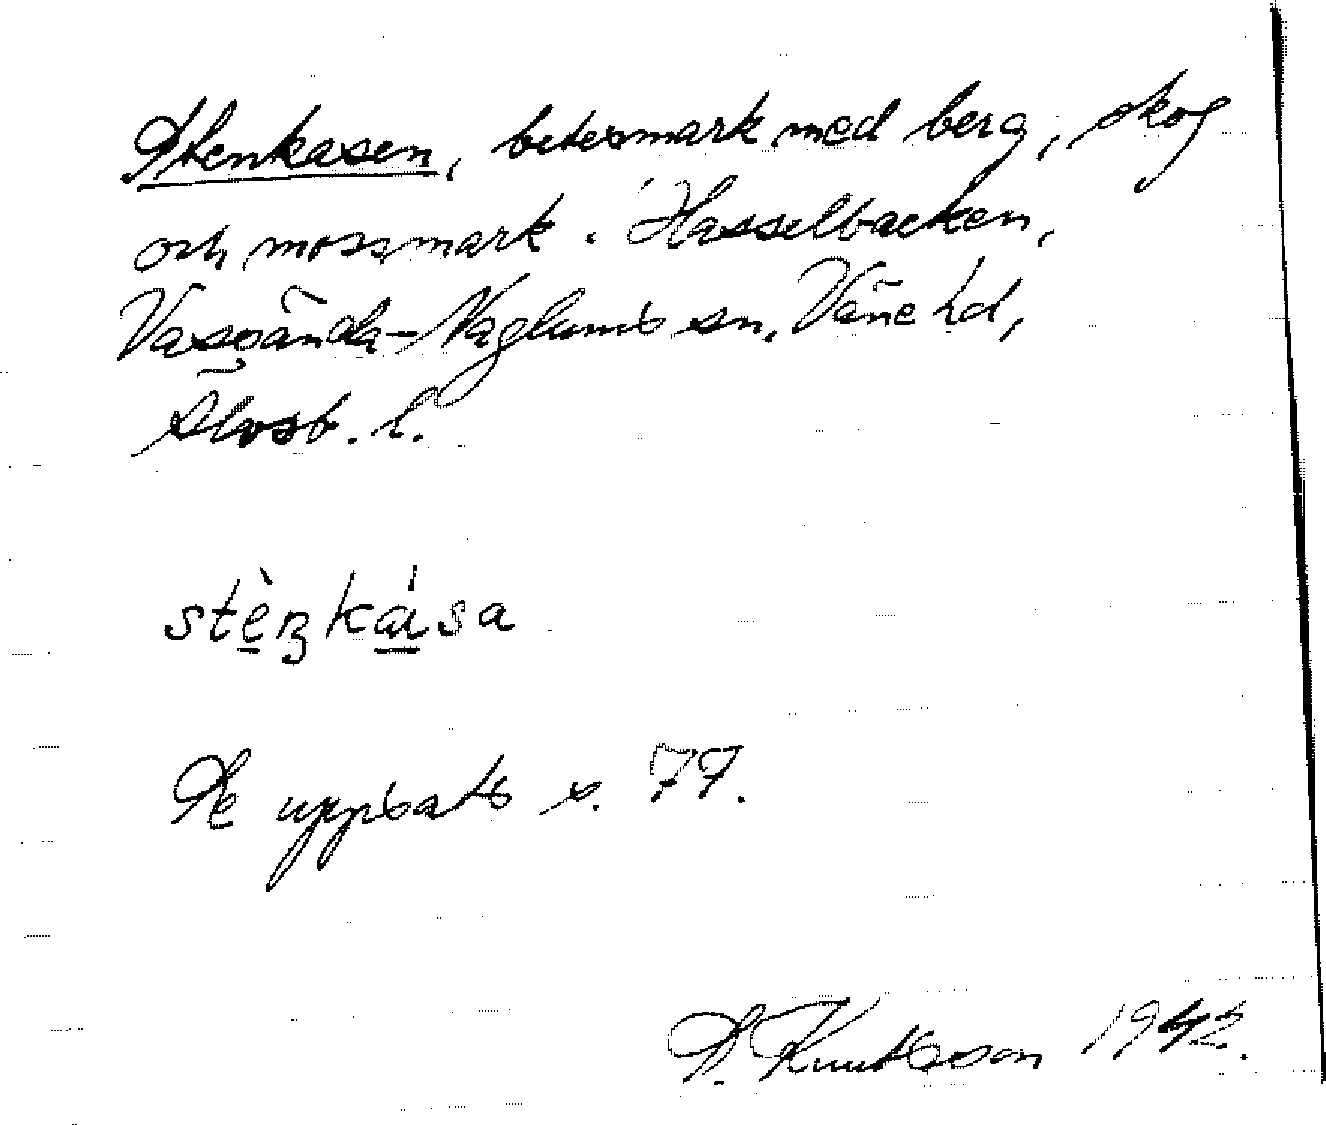 Stenkasen, betesmark med berg, skog
och mossmark. Hasselbacken,
Vassända-Naglums sn, Väne hd,
Älvsb. l.
stènkása
Se uppsats s. 77.
Knutsson 1942.